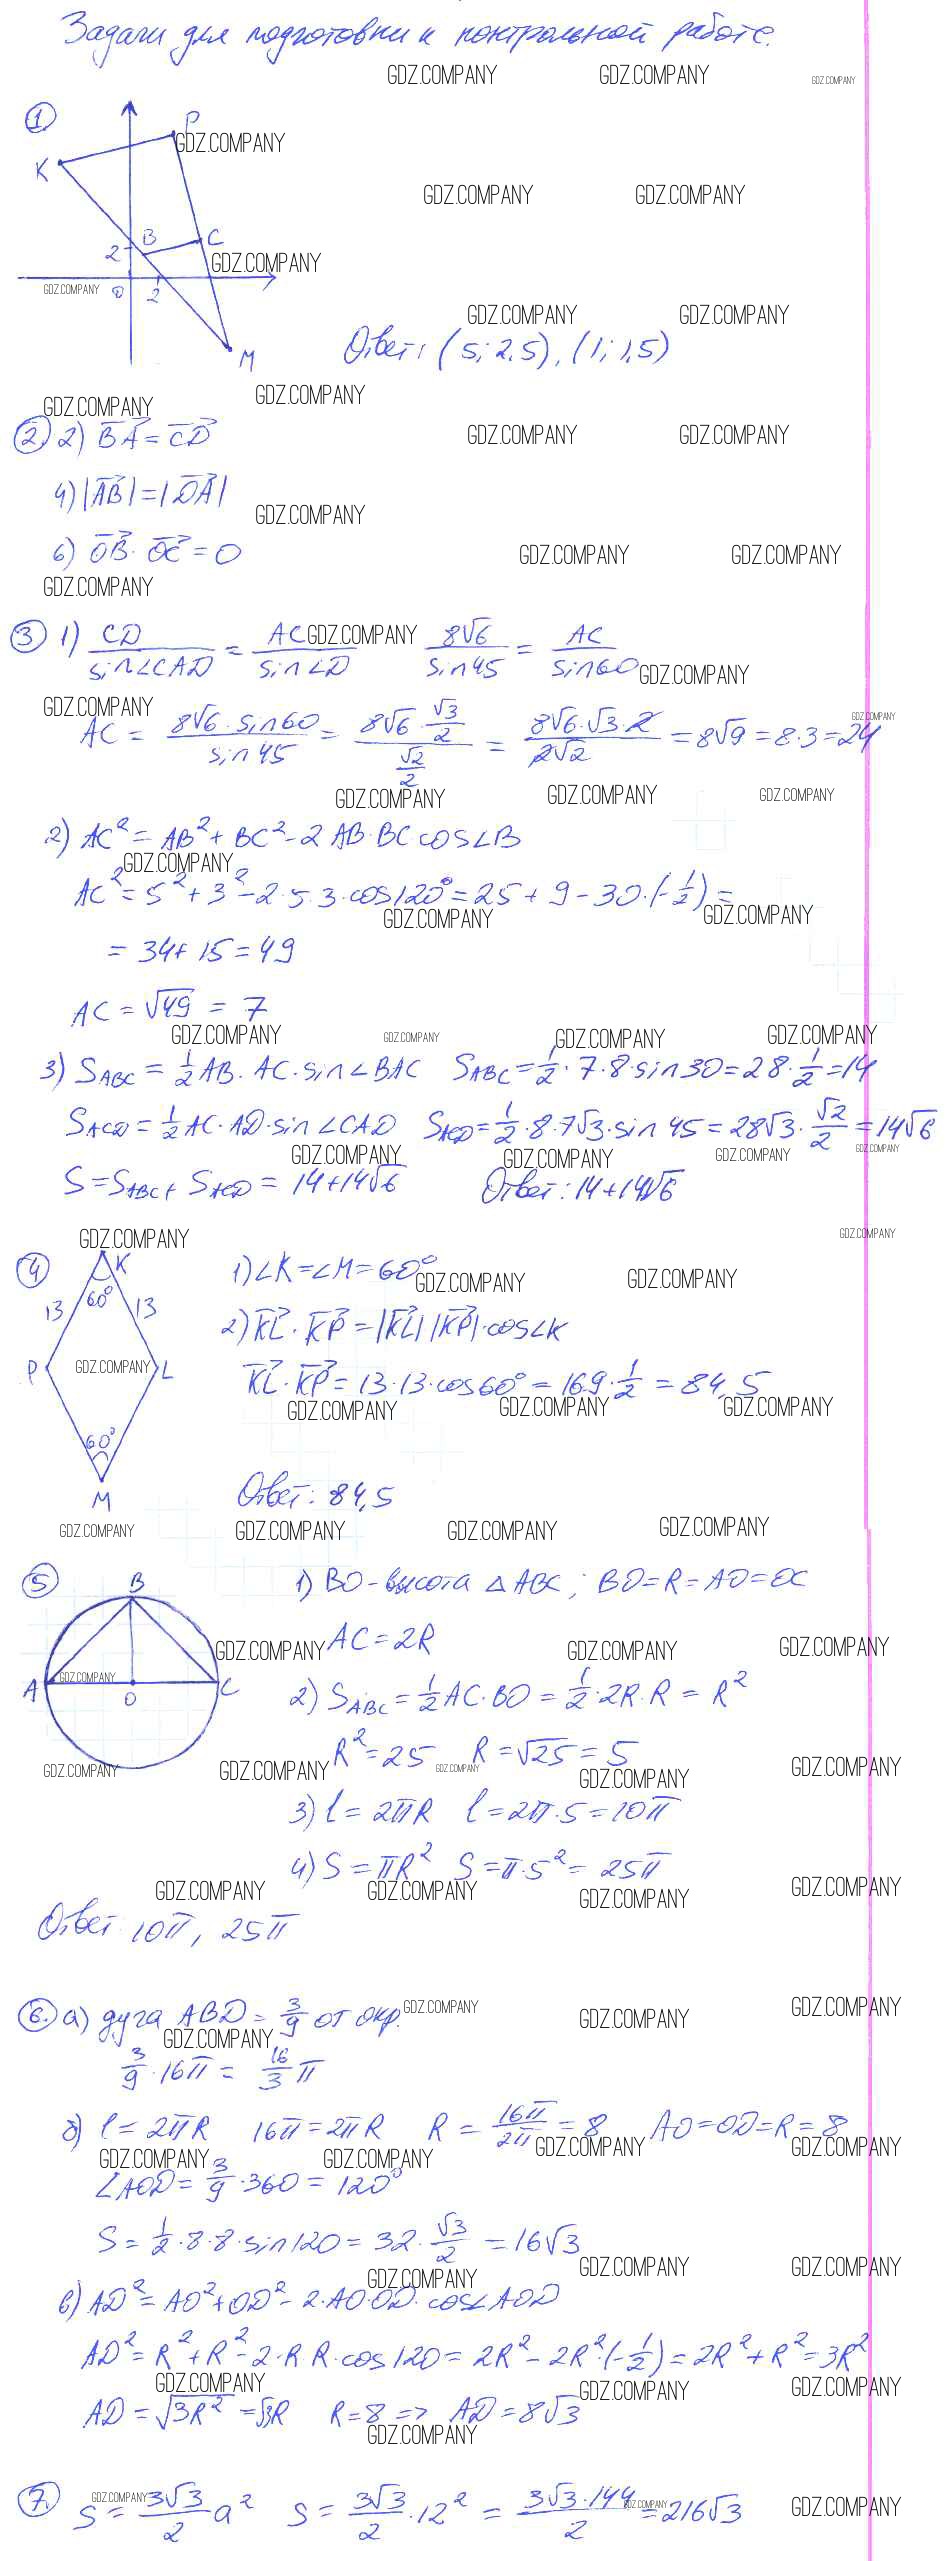 Задачи для подготовки к контрольной работе.
GDZ.COMPANY GDZ.COMPANY GDZ.COMPANY
① P
GDZ.COMPANY
K
GDZ.COMPANY GDZ.COMPANY
2 B C
GDZ.COMPANY
GDZ.COMPANY 0 2
GDZ.COMPANY GDZ.COMPANY
M
Ответ: (5; 2,5), (1; 1,5)
GDZ.COMPANY GDZ.COMPANY
② 2) BA⃗ = CD⃗
GDZ.COMPANY GDZ.COMPANY
4) |AB⃗| = |DA⃗|
GDZ.COMPANY
6) OB⃗ · OC⃗ = 0
GDZ.COMPANY GDZ.COMPANY
GDZ.COMPANY
③ 1) CD/sin∠CAD = AC/sin∠D 8√6/sin45 = AC/sin60
GDZ.COMPANY GDZ.COMPANY
GDZ.COMPANY GDZ.COMPANY
AC = 8√6 · sin60/sin45 = (8√6 · √3/2)/(√2/2) = 8√6·√3·2/2√2 = 8√9 = 8·3 = 24
GDZ.COMPANY GDZ.COMPANY GDZ.COMPANY
2) AC² = AB² + BC² - 2 AB·BC cos∠B
GDZ.COMPANY
AC² = 5² + 3² - 2·5·3·cos120° = 25 + 9 - 30·(-1/2) =
GDZ.COMPANY GDZ.COMPANY
= 34 + 15 = 49
AC = √49 = 7
GDZ.COMPANY GDZ.COMPANY GDZ.COMPANY GDZ.COMPANY
3) S_ABC = 1/2 AB · AC · sin∠BAC S_ABC = 1/2 · 7·8·sin30 = 28·1/2 = 14
S_ACD = 1/2 AC·AD·sin∠CAD S_ACD = 1/2·8·7√3·sin45 = 28√3·√2/2 = 14√6
GDZ.COMPANY GDZ.COMPANY GDZ.COMPANY GDZ.COMPANY
S = S_ABC + S_ACD = 14+14√6 Ответ: 14+14√6
GDZ.COMPANY GDZ.COMPANY
④ K 1) ∠K = ∠M = 60°
60° GDZ.COMPANY GDZ.COMPANY
13 13
2) KL⃗ · KP⃗ = |KL⃗| |KP⃗| · cos∠K
P GDZ.COMPANY L
KL⃗ · KP⃗ = 13·13·cos60° = 169·1/2 = 84,5
GDZ.COMPANY GDZ.COMPANY GDZ.COMPANY
60°
M
Ответ: 84,5
GDZ.COMPANY GDZ.COMPANY GDZ.COMPANY GDZ.COMPANY
⑤ B 1) BO - высота △ABC; BO = R = AO = OC
GDZ.COMPANY AC = 2R GDZ.COMPANY GDZ.COMPANY
A GDZ.COMPANY O C
2) S_ABC = 1/2 AC·BO = 1/2·2R·R = R²
R² = 25 R = √25 = 5
GDZ.COMPANY GDZ.COMPANY GDZ.COMPANY GDZ.COMPANY GDZ.COMPANY
3) l = 2πR l = 2π·5 = 10π
4) S = πR² S = π·5² = 25π
GDZ.COMPANY GDZ.COMPANY GDZ.COMPANY GDZ.COMPANY
Ответ: 10π, 25π
⑥. а) дуга ABD = 3/9 от окр.
GDZ.COMPANY GDZ.COMPANY GDZ.COMPANY
GDZ.COMPANY
3/9 · 16π = 16/3 π
б) l = 2πR 16π = 2πR R = 16π/2π = 8 AO = OD = R = 8
GDZ.COMPANY GDZ.COMPANY GDZ.COMPANY GDZ.COMPANY
∠AOD = 3/9 · 360 = 120°
S = 1/2·8·8·sin120 = 32·√3/2 = 16√3
GDZ.COMPANY GDZ.COMPANY GDZ.COMPANY
в) AD² = AO² + OD² - 2·AO·OD·cos∠AOD
AD² = R² + R² - 2·R R·cos120 = 2R² - 2R²·(-1/2) = 2R² + R² = 3R²
GDZ.COMPANY GDZ.COMPANY GDZ.COMPANY
AD = √3R² = √3R R = 8 => AD = 8√3
GDZ.COMPANY
⑦. S = 3√3/2 a² S = 3√3/2 · 12² = 3√3·144/2 = 216√3
GDZ.COMPANY GDZ.COMPANY GDZ.COMPANY